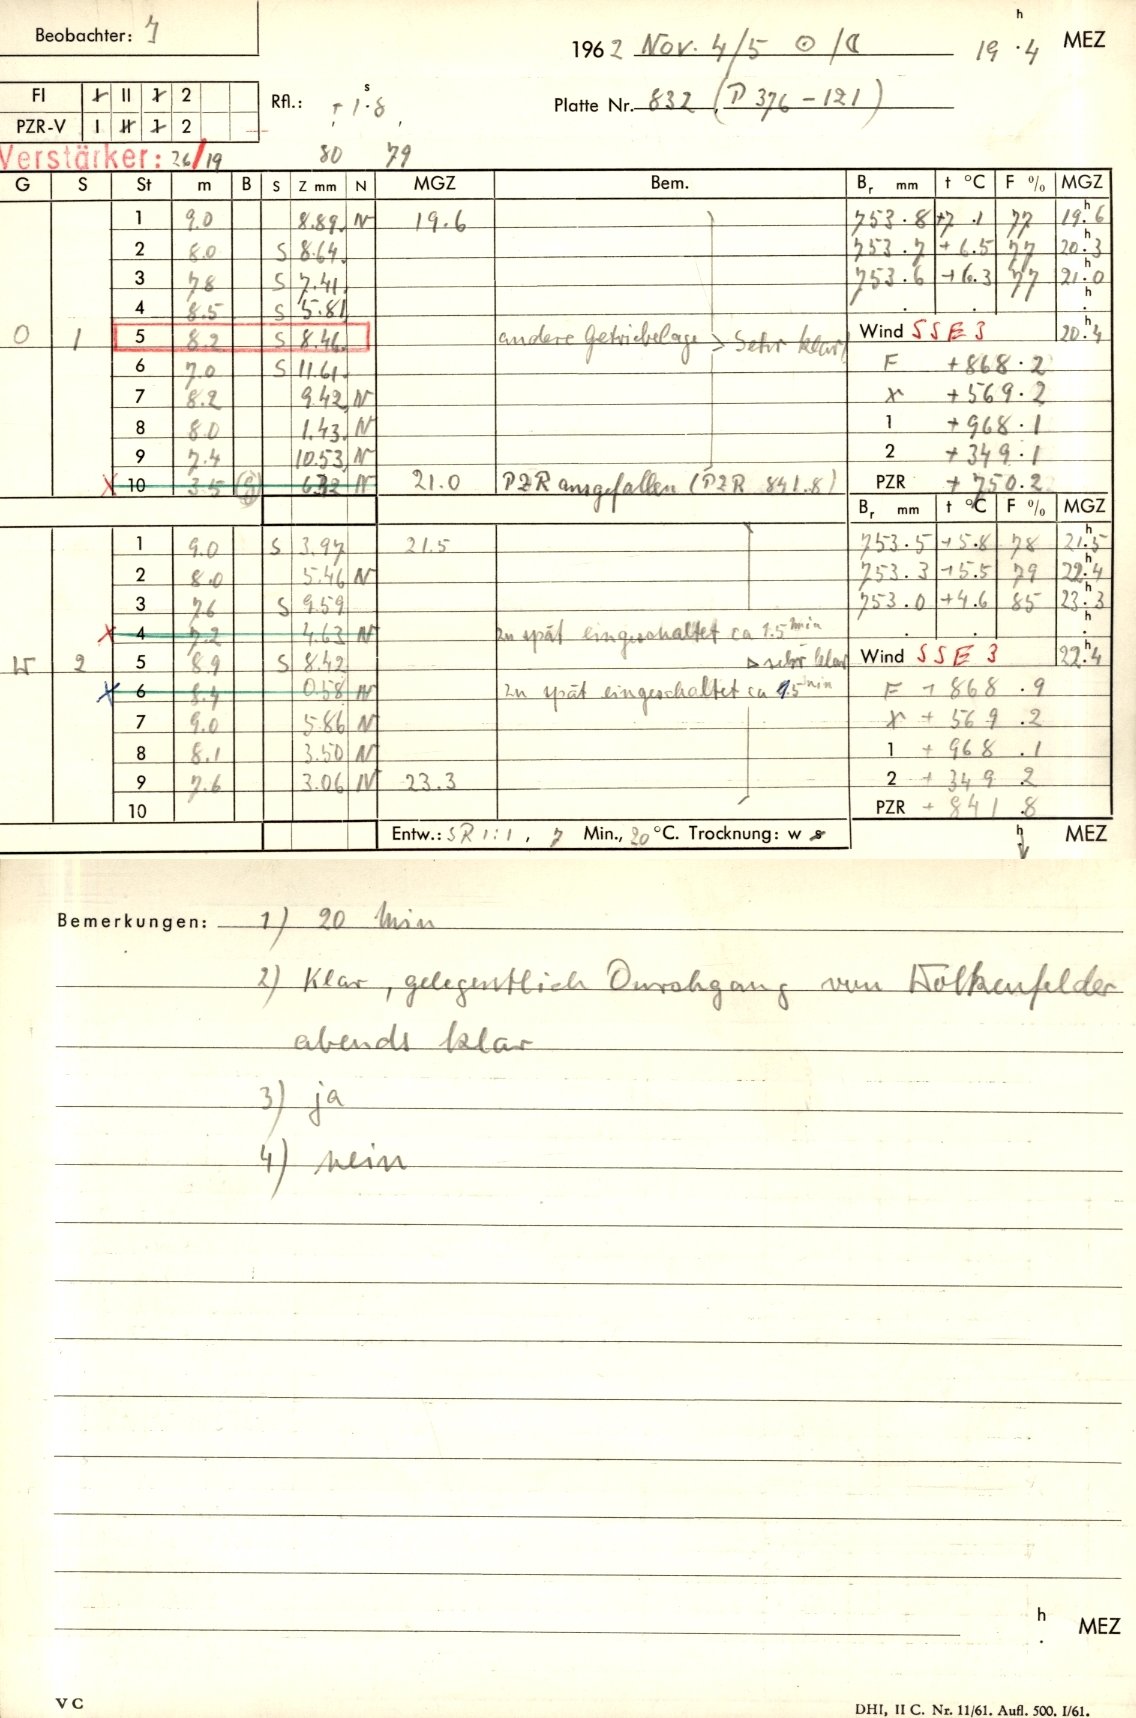 Beobachter: J
1962 Nov. 4/5 ☉/☾ 19 h .4 MEZ
FI I II 1 2
PZR-V I II 1 2
Rfl.: +1 s .8
Platte Nr. 832 (P 376-121)
Verstärker: 26/19 80 79
G S St m B S Z mm N MGZ Bem. Br mm t °C F % MGZ
1 9.0 8.89 N 19.6 753.8 +7.1 77 19 h .6
2 8.0 S 8.64 753.7 +6.5 77 20 h .3
3 7.8 S 7.41 753.6 +6.3 77 21 h .0
4 8.5 S 5.81 . . h .
0 1 5 8.2 S 8.46 andere Getriebelage > Sehr klar Wind SSE 3 20 h .4
6 7.0 S 11.61 F +868.2
7 8.2 9.42 N r +569.2
8 8.0 1.43 N 1 +968.1
9 7.4 10.53 N 2 +349.1
10 3.5 N 21.0 PZR ausgefallen (PZR 841.8) PZR +750.2
Br mm t °C F % MGZ
1 9.0 S 3.97 21.5 753.5 +5.8 78 21 h .5
2 8.0 5.46 N 753.3 +5.5 79 22 h .4
3 7.6 S 9.59 753.0 +4.6 85 23 h .3
4 7.2 4.63 N zu spät eingeschaltet ca 1.5 min . . h .
W 2 5 8.9 S 8.42 > sehr klar Wind SSE 3 22 h .4
6 8.4 0.58 N zu spät eingeschaltet ca 1.5 min F +868.9
7 9.0 5.86 N r +569.2
8 8.1 3.50 N 1 +968.1
9 7.6 3.06 N 23.3 2 +349.2
10 PZR +841.8
Entw.: SR 1:1, 7 Min., 20 °C. Trocknung: w s h MEZ
Bemerkungen: 1) 20 Min
2) Klar, gelegentlich Durchgang von Wolkenfelder
abends klar
3) ja
4) nein
h . MEZ
V C
DHI, II C. Nr. 11/61. Aufl. 500. I/61.